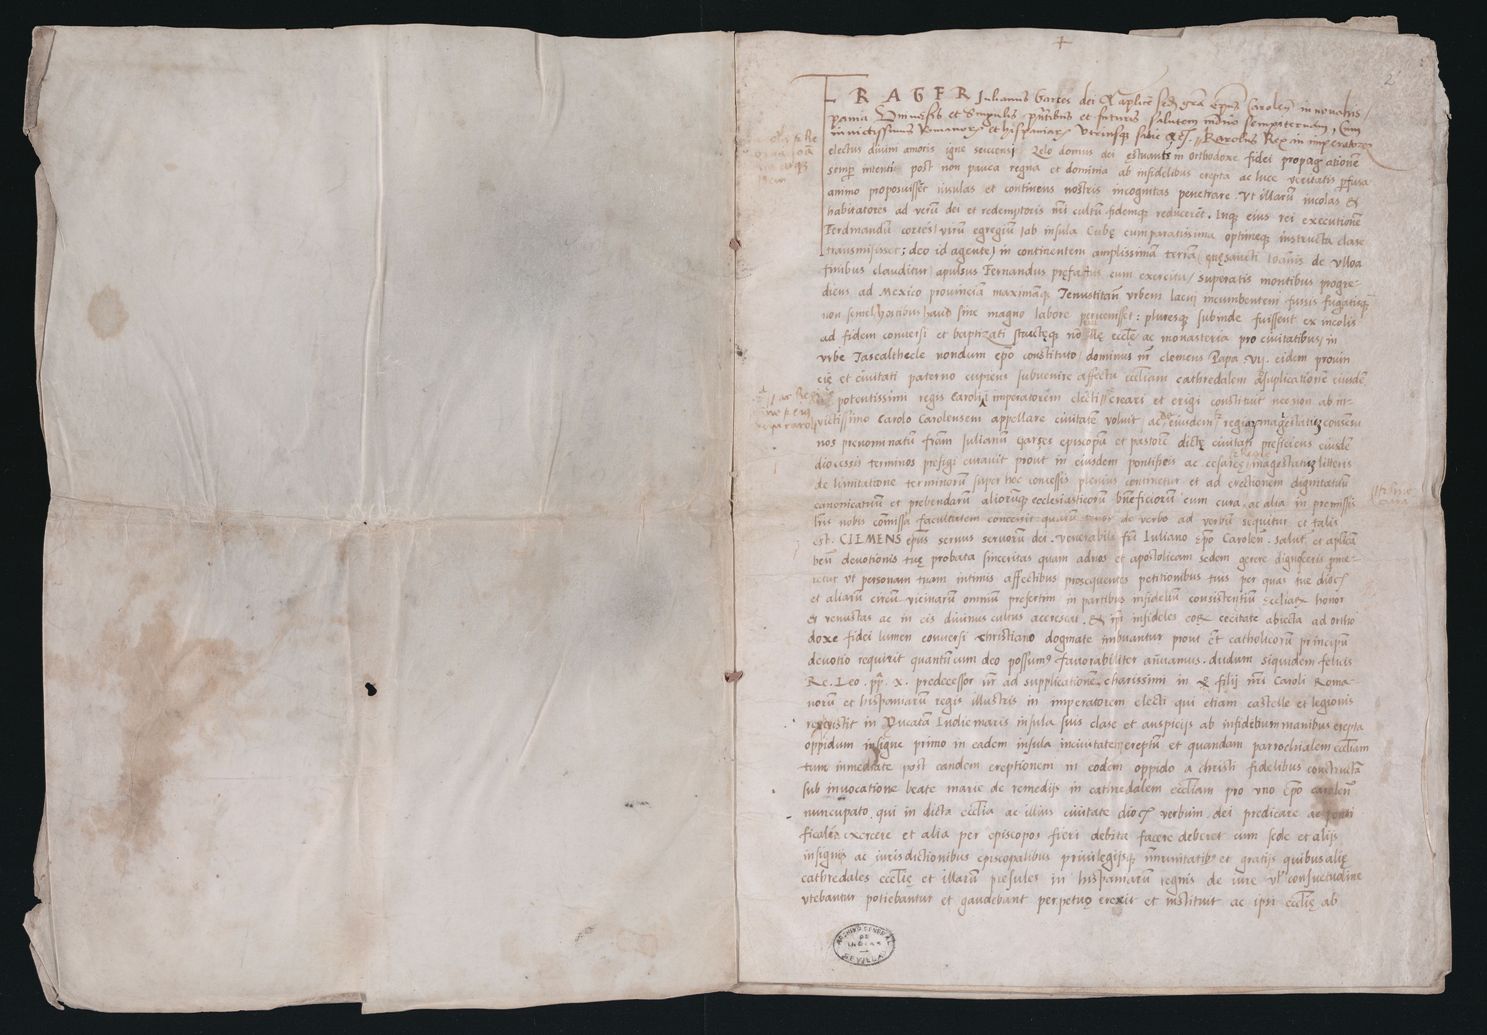 +
2
FRAGER Julianus Garces dei & aplice sedis gra epus Carolen in nova his
pania Universis et singulis pntibus et futuris salutem in dno sempiternam, Cum
invictissimus Romanor et hispaniar utriusq sicilie &c. Karolus Rex in imperatorem
electus divini amoris igne succensus zelo domus dei estuans in orthodoxe fidei propagatione
semp intentus post non pauca regna et dominia ab infidelibus erepta ac luce veritatis pfusa
animo proposuisset insulas et continens nostris incognitas penetrare. Ut illaru incolas &
habitatores ad veru dei et redemptoris nri cultu fidemq reduceret. Inq eius rei executione
Ferdinandu cortes / viru egregiu / ab insula Cube cum paratissima optimeq instructa clase
transmisisset; deo id agente / in continentem amplissima terra / que sancti Joanis de ulloa
finibus clauditur / apulsus Fernandus prefatus cum exercitu / superatis montibus progre-
diens ad Mexico provincia maximaq Tenustitan urbem lacui incumbentem fusis fugatisq
non semel hostibus haud sine magno labore pervenisset: pluresq subinde fuissent ex incolis
ad fidem conversi et baptizati structeq nonulle eccle ac monasteria pro civitatibus / in
urbe Tascalthecle nondum epo constituto / dominus nr clemens Papa vij. eidem provin
cie et civitati paterno cupiens subvenire affectu eccliam cathredalem ad suplicatione eiusde
potentissimi regis Caroli imperatorem electi creari et erigi constituit nec non ab in-
victissimo Carolo Carolensem appellare civitate voluit / ac de eiusdem regia magestatis consensu
nos prenominatu fram Julianum Garses episcopu et pastore dicte civitati preficiens eiusde
diocessis terminos prefigi curavit prout in eiusdem pontificis ac cesaree magestatis litteris
de limitatione terminorum super hoc concessis plenius continetur et ad erectionem dignitatum
canonicatuu et prebendaru aliorumq ecclesiasticoru bneficioru cum cura, ac alia in premissis
lris nobis comissa facultatem concessit quaru tenor de verbo ad verbu sequitur et talis
est. CLEMENS epus servus servoru dei. venerabili fri Juliano epo Carolen. salut et aplica
ben devotionis tue probata sinceritas quam ad nos et apostolicam sedem gerere dignosceris pme-
retur ut personam tuam intimis affectibus prosequentes petitionibus tuis per quas tue dioc
et aliaru circu vicinarum omniu presertim in partibus infideliu consistentiu eccliar honor
et venustas ac in eis divinus cultus accrescat. & ipi infideles cor cecitate abiecta ad ortho
doxe fidei lumen conversi christiano dogmate imbuantur prout et catholicoru principu
devotio requirit quantu cum deo possum favorabiliter anuamus. dudum siquidem felicis
Re. Leo. pp. x. predecessor nr ad supplicatione charissimi in x filij nri Caroli Roma-
noru et hispaniarum regis illustris in imperatorem electi qui etiam castelle et legionis
rex existit in Yucata Indie maris insula suis clase et auspicijs ab infidelium manibus erepta
oppidum insigne primo in eadem insula in civitatem ereptu et quandam parrochialem eccliam
tum inmediate post eandem ereptionem in eodem oppido a christi fidelibus constructa
sub invocatione beate marie de remedijs in cathredalem eccliam pro uno epo carolen
nuncupato. qui in dicta ecclia ac illius civitate dioc verbum dei predicare ac ponti
ficalia exercere et alia per episcopos fieri debita facere deberet cum sede et alijs
insignijs ac iurisdictionibus episcopalibus privilegijsq immunitatibus et gratijs quibus alie
cathredales ecclie et illaru presules in hispaniaru regnis de iure vl consuetudine
utebantur potiebantur et gaudebant perpetuo erexit et instituit ac ipsi ecclie ab
ARCHIVO GENERAL
DE
INDIAS
SEVILLA